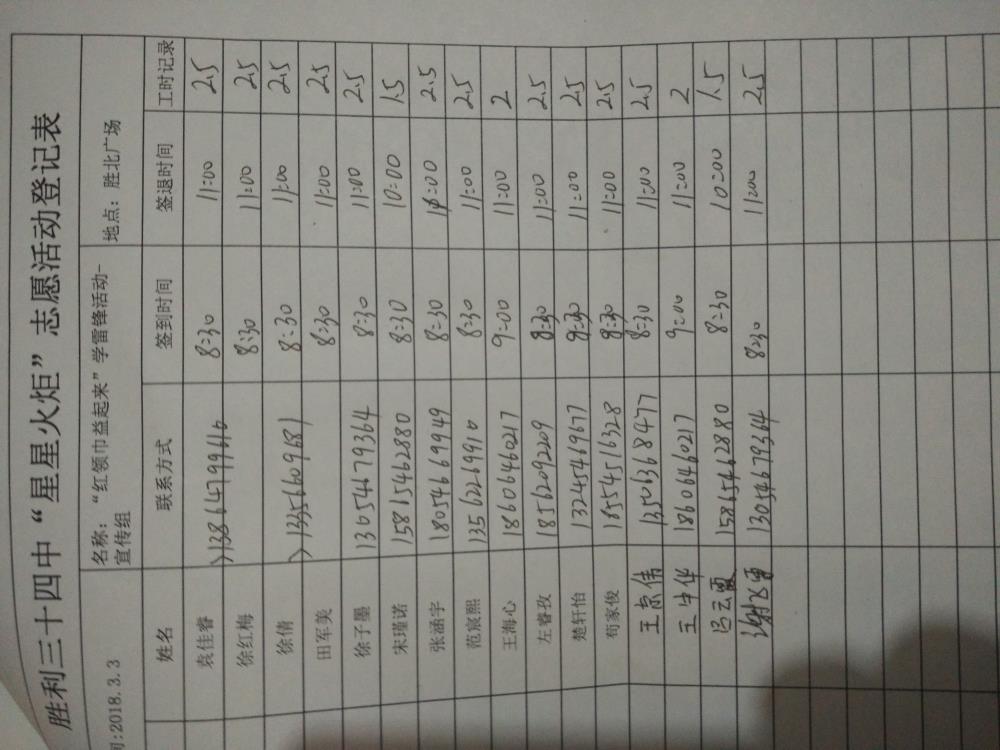 胜利三十四中“星星火炬”志愿活动登记表
间:2018.3.3 名称：“红领巾益起来”学雷锋活动- 地点：胜北广场
宣传组
姓名 联系方式 签到时间 签退时间 工时记录
袁佳睿 13864799616 8:30 11:00 2.5
徐红梅 8:30 11:00 2.5
徐倩 13356609681 8:30 11:00 2.5
田军美 8:30 11:00 2.5
徐子墨 13054679364 8:30 11:00 2.5
宋瑾诺 15815462880 8:30 10:00 1.5
张涵宇 18054669949 8:30 11:00 2.5
范宸熙 13562269910 8:30 11:00 2.5
王海心 18606460217 9:00 11:00 2
左睿孜 18562092209 8:30 11:00 2.5
楚轩怡 13245469677 8:30 11:00 2.5
荀家俊 18554516328 8:30 11:00 2.5
王京伟 13506368477 8:30 11:00 2.5
王中华 18606460217 9:00 11:00 2
15865462880 8:30 10:00 1.5
谢飞雪 13054679364 8:30 11:00 2.5